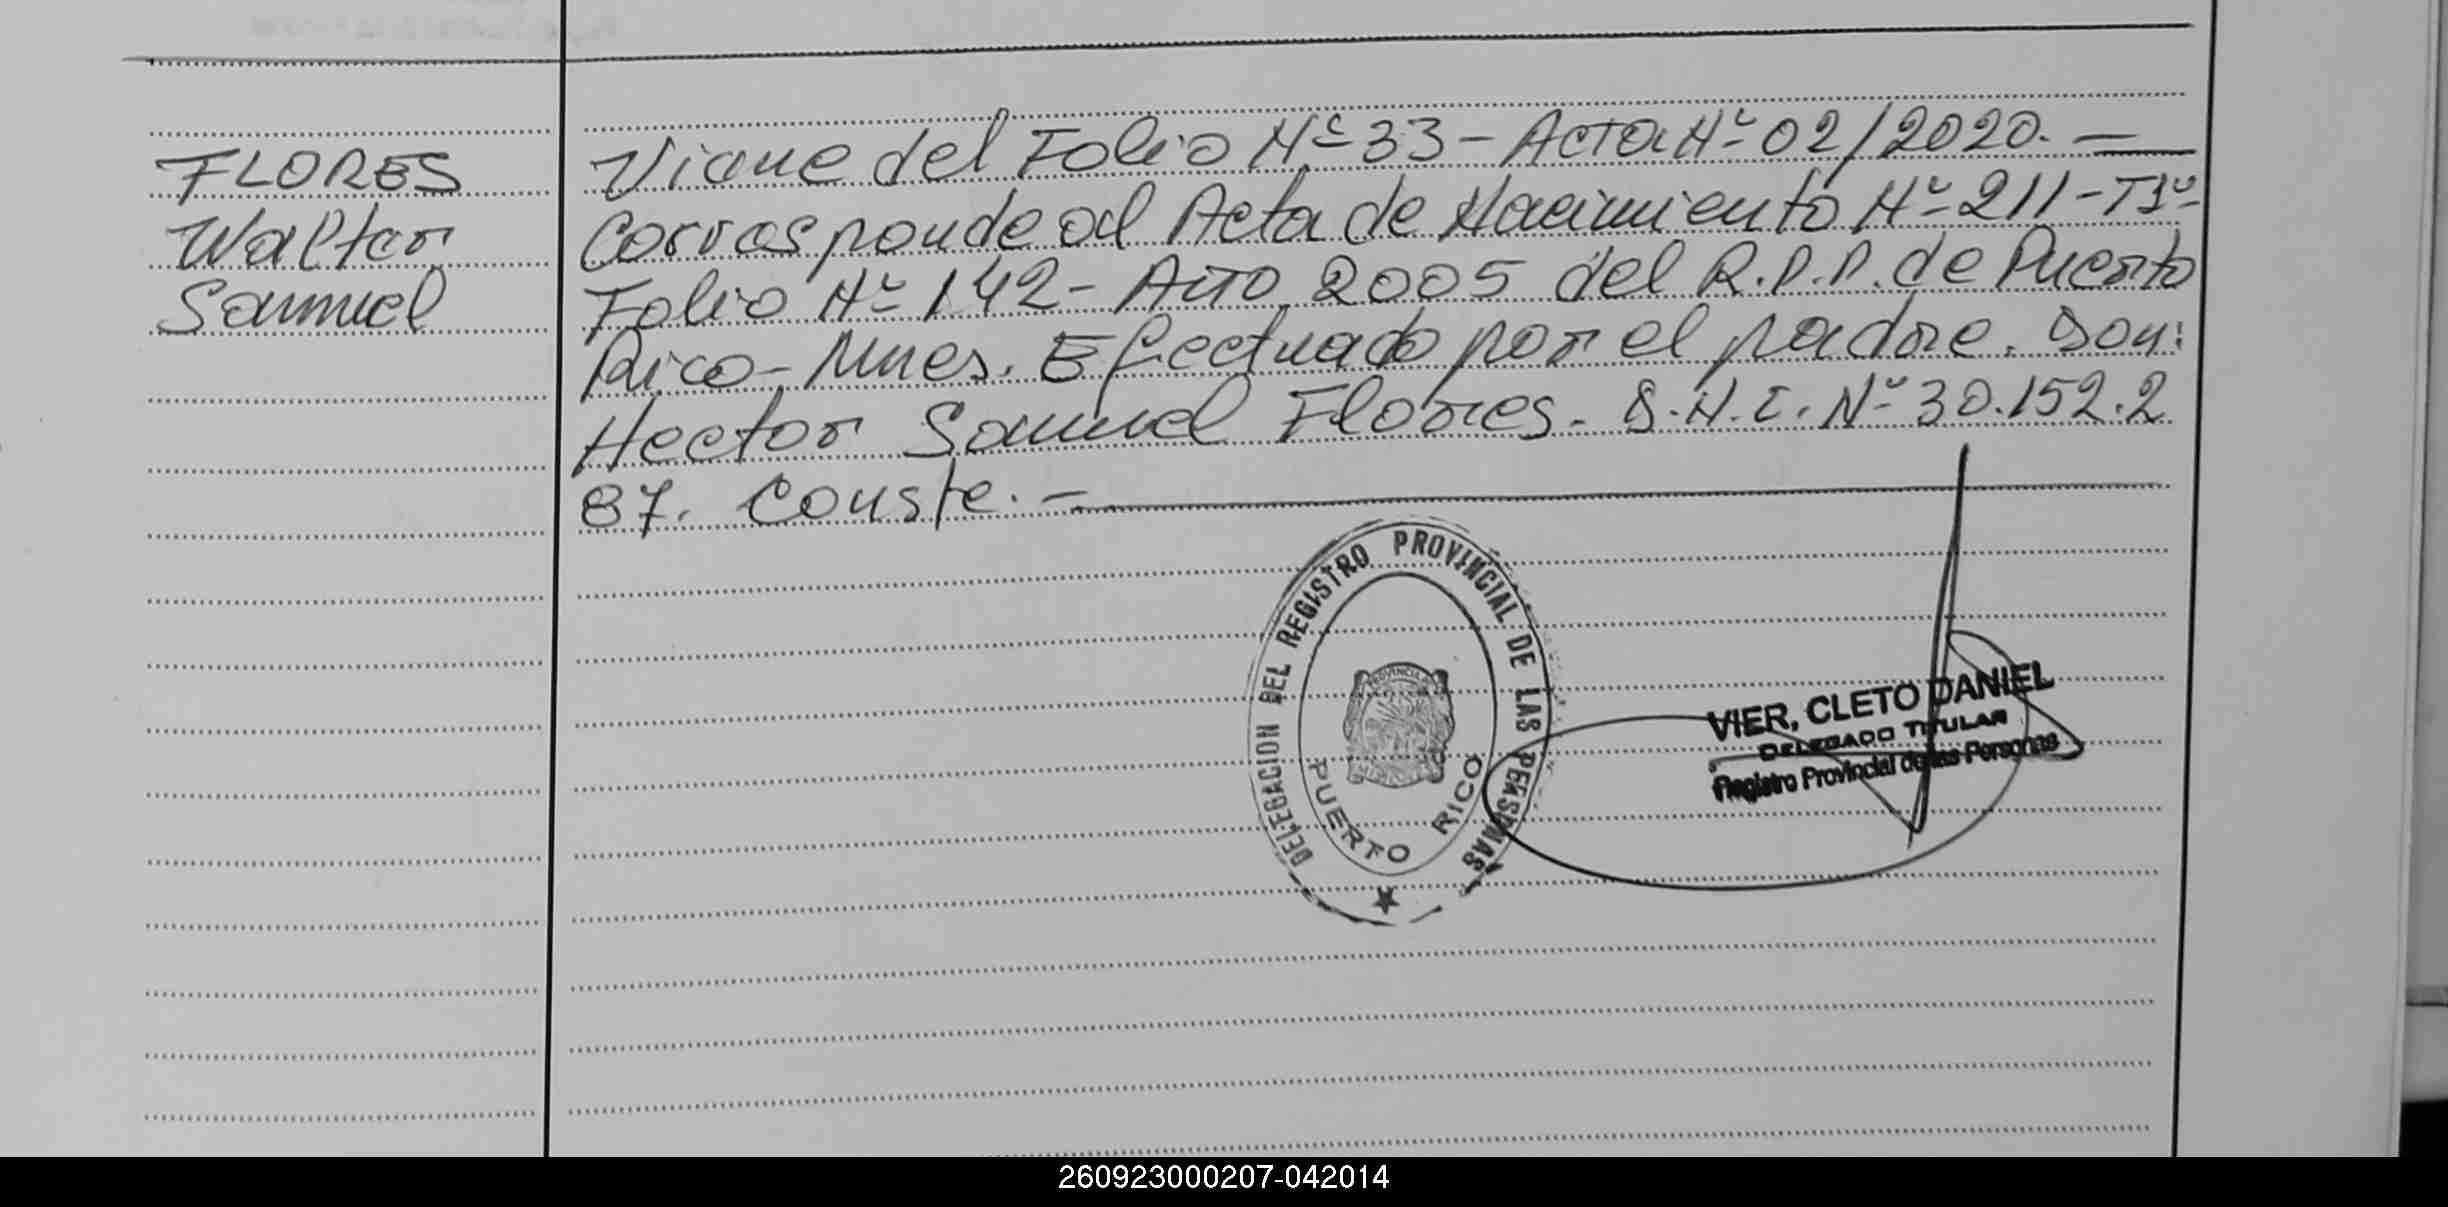 FLORES
Walter
Samuel
Viene del Folio Nº 33 - Acta Nº 02/2020. -
Corresponde al Acta de Nacimiento Nº 211 - Tº 1º
Folio Nº 142 - Año 2005 del R.P.P. de Puerto
Rico - Mnes. Efectuado por el padre. Don:
Hector Samuel Flores. D.N.I. Nº 30.152.2
87. Conste. -
DELEGACION DEL REGISTRO PROVINCIAL DE LAS PERSONAS
PUERTO RICO
VIER, CLETO DANIEL
DELEGADO TITULAR
Registro Provincial de las Personas
260923000207-042014